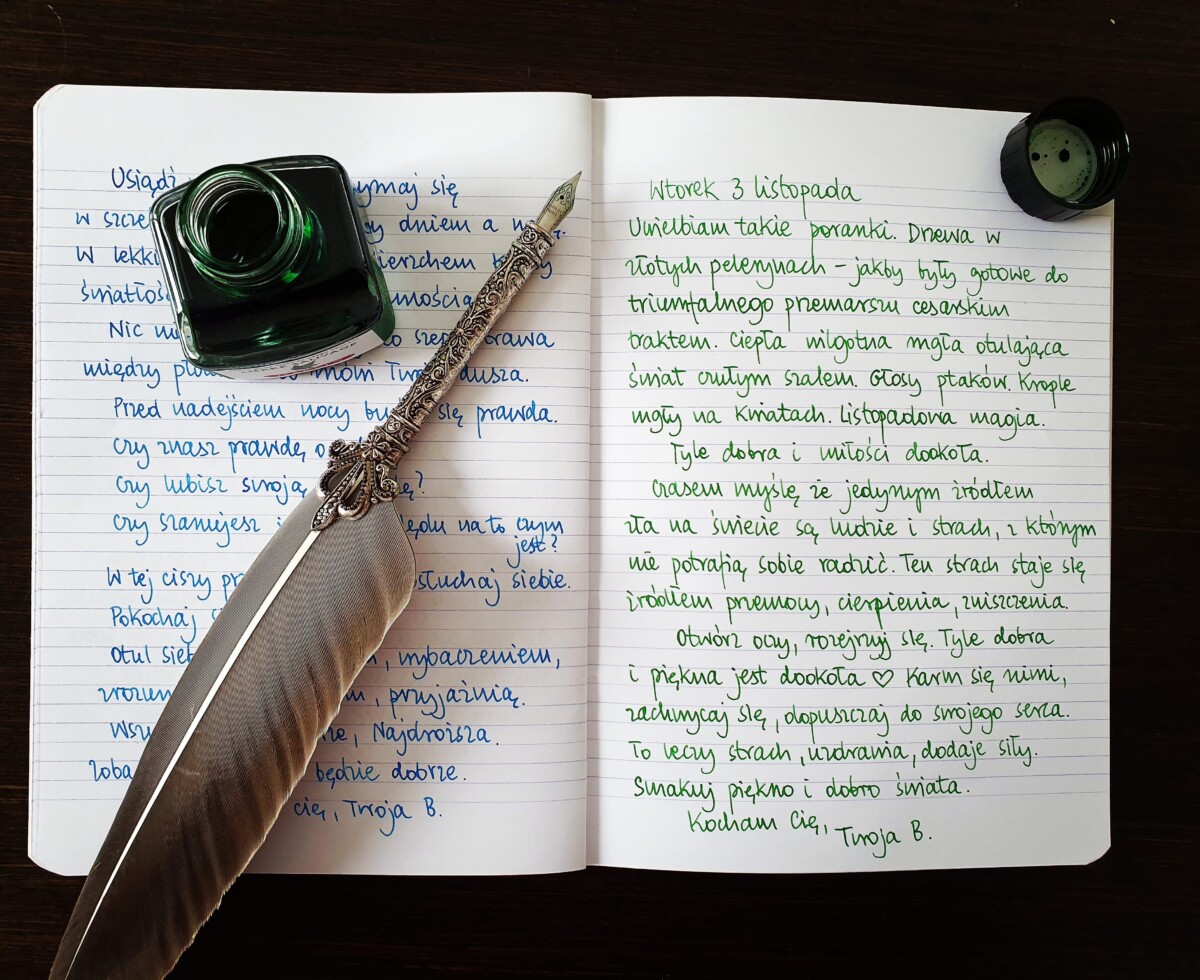 Usiądź ymaj się
w szcze dniem a n
W lekki ierzchem
światłoś mością
Nic szep trawa
między Twoja dusza.
Przed nadejściem nocy bu się prawda.
Czy znasz prawdę o
Czy lubisz swoją ?
Czy szanujesz ględu na to czym
jest?
W tej ciszy pr osłuchaj siebie.
Pokochaj s
Otul sieb , wybaczeniem,
zrozum m, przyjaźnią.
Wsz ie, Najdroższa.
Zoba będzie dobrze.
cię, Twoja B.
Wtorek 3 listopada
Uwielbiam takie poranki. Drzewa w
złotych pelerynach – jakby były gotowe do
triumfalnego przemarszu cesarskim
traktem. Ciepła wilgotna mgła otulająca
świat czułym szalem. Głosy ptaków. Krople
mgły na kwiatach. Listopadowa magia.
Tyle dobra i miłości dookoła.
Czasem myślę że jedynym źródłem
zła na świecie są ludzie i strach, z którym
nie potrafią sobie radzić. Ten strach staje się
źródłem przemocy, cierpienia, zniszczenia.
Otwórz oczy, rozejrzyj się. Tyle dobra
i piękna jest dookoła ♡ Karm się nimi,
zachwycaj się, dopuszczaj do swojego serca.
To leczy strach, uzdrawia, dodaje siły.
Smakuj piękno i dobro świata.
Kocham Cię,
Twoja B.